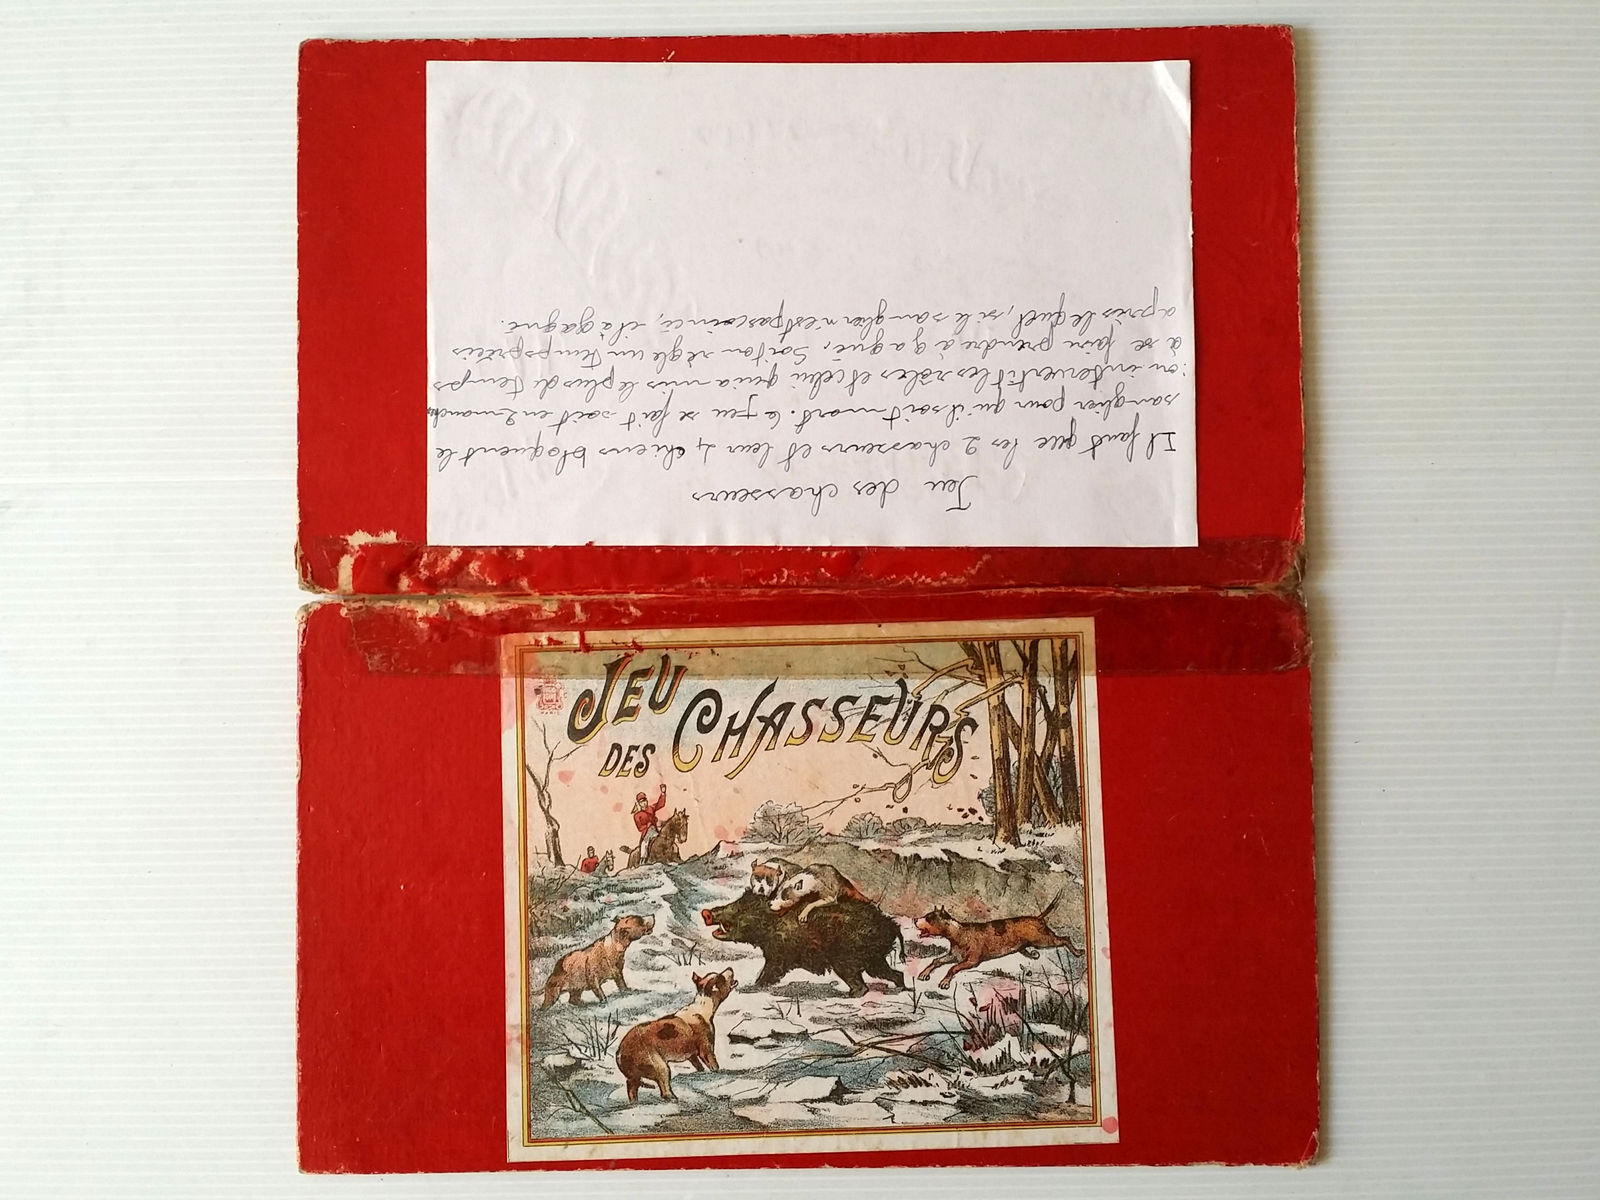 Jeu des chasseurs
Il faut que les 2 chasseurs et leur 4 chiens bloquent le
sanglier pour qu'il soit mort. Le jeu se fait soit en 2 manches
: on intervertit les rôles et celui qui a mis le plus de temps
à se faire prendre à gagné, Soit on règle un temps précis
après lequel, si le sanglier n'est pas coincé, il à gagné.
JEU
DES CHASSEURS
PARIS